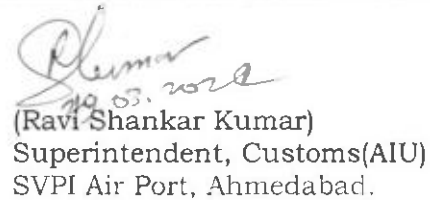 03.2022
(Ravi Shankar Kumar)
Superintendent, Customs(AIU)
SVPI Air Port, Ahmedabad.